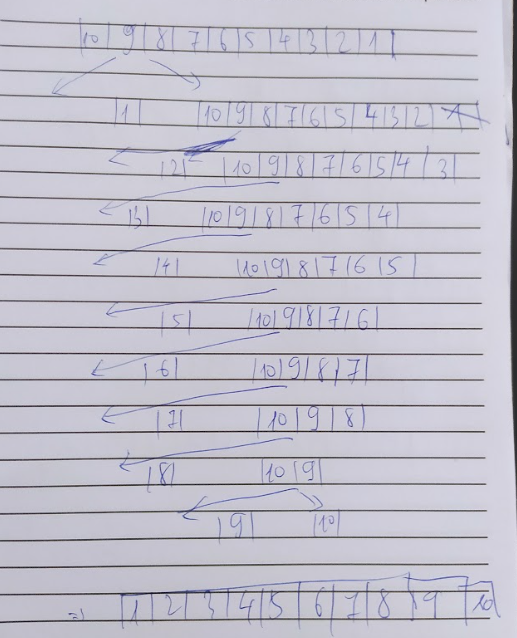 |10|9|8|7|6|5|4|3|2|1|
|1| |10|9|8|7|6|5|4|3|2|
|2| |10|9|8|7|6|5|4|3|
|3| |10|9|8|7|6|5|4|
|4| |10|9|8|7|6|5|
|5| |10|9|8|7|6|
|6| |10|9|8|7|
|7| |10|9|8|
|8| |10|9|
|9| |10|
=> |1|2|3|4|5|6|7|8|9|10|